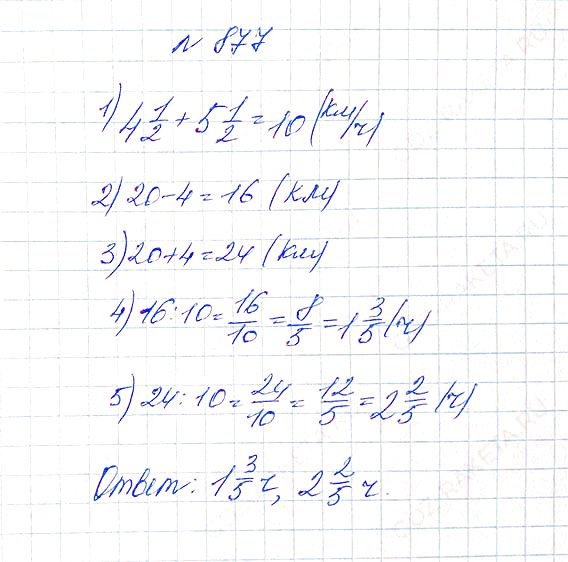 № 877
1) 4 1/2 + 5 1/2 = 10 (км/ч)
2) 20-4=16 (км)
3) 20+4=24 (км)
4) 16:10 = 16/10 = 8/5 = 1 3/5 (ч)
5) 24:10 = 24/10 = 12/5 = 2 2/5 (ч)
Ответ: 1 3/5 ч, 2 2/5 ч.